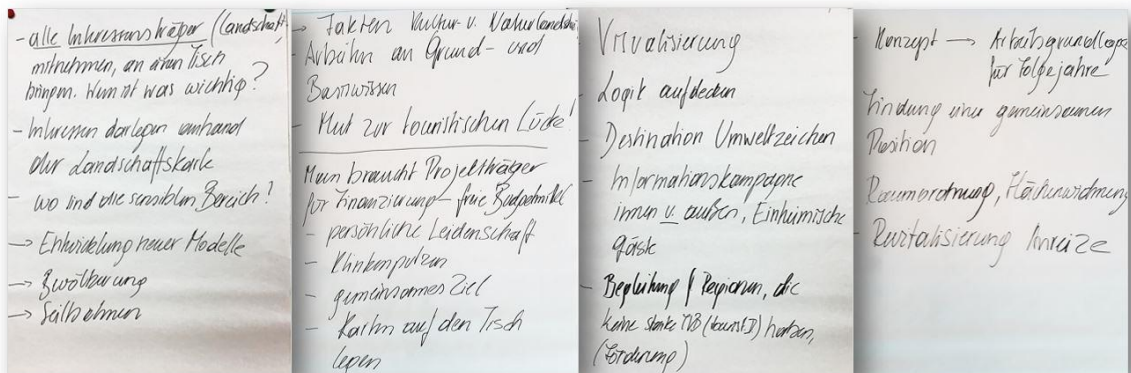 - alle Interessensträger (Landschaft,
mitnehmen, an einen Tisch
bringen. Wem ist was wichtig?
- Interessen darlegen anhand
der Landschaftskarte
- wo sind die sensiblen Bereich?
→ Entwicklung neuer Modelle
→ Bevölkerung
→ Seilbahnen
→ Fakten Kultur- v. Naturlandsch
- Arbeiten an Grund- und
Basiswissen
- Mut zur touristischen Lücke!
Man braucht Projektträger
für Finanzierung - freie Budgetmittel
- persönliche Leidenschaft
- Klinkenputzen
- gemeinsames Ziel
- Karten auf den Tisch
legen
Visualisierung
- Logik aufdecken
- Destination Umweltzeichen
- Informationskampagne
innen u. außen, Einheimische
Gäste
- Begleitung f Regionen, die
keine starke TVB (tourist.) haben,
(Förderung)
- Konzept → Arbeitsgrundlage
für Folgejahre
Findung einer gemeinsamen
Position
Raumordnung, Flächenwidmung
- Revitalisierung Anreize